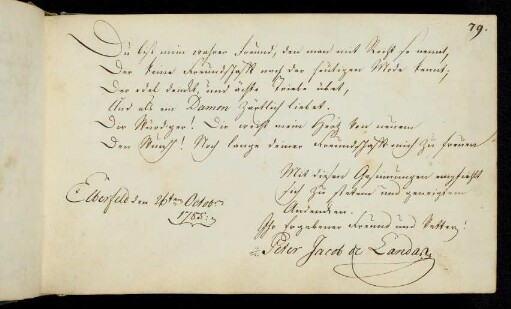 79.
Du bist mein wahrer Freund, den man mit Recht so nennt,
Der keine Freundschafft nach der heutigen Mode kennt;
Der edel denckt, und ächte Triebe übet,
Und als ein Damon Zärtlich liebet.
Dir Würdiger! Dir weiht mein Hertz von neuem
Den Wunsch! Noch lange deiner Freundschafft mich zu freuen
Mit diesen Gesinnungen empfiehlt
sich zu stetem und geneigtem
Andencken.
Elberfeld den 26ten Octobr
1785:
Ihr Ergebener Freund und Vetter!
Peter Jacob de Landas